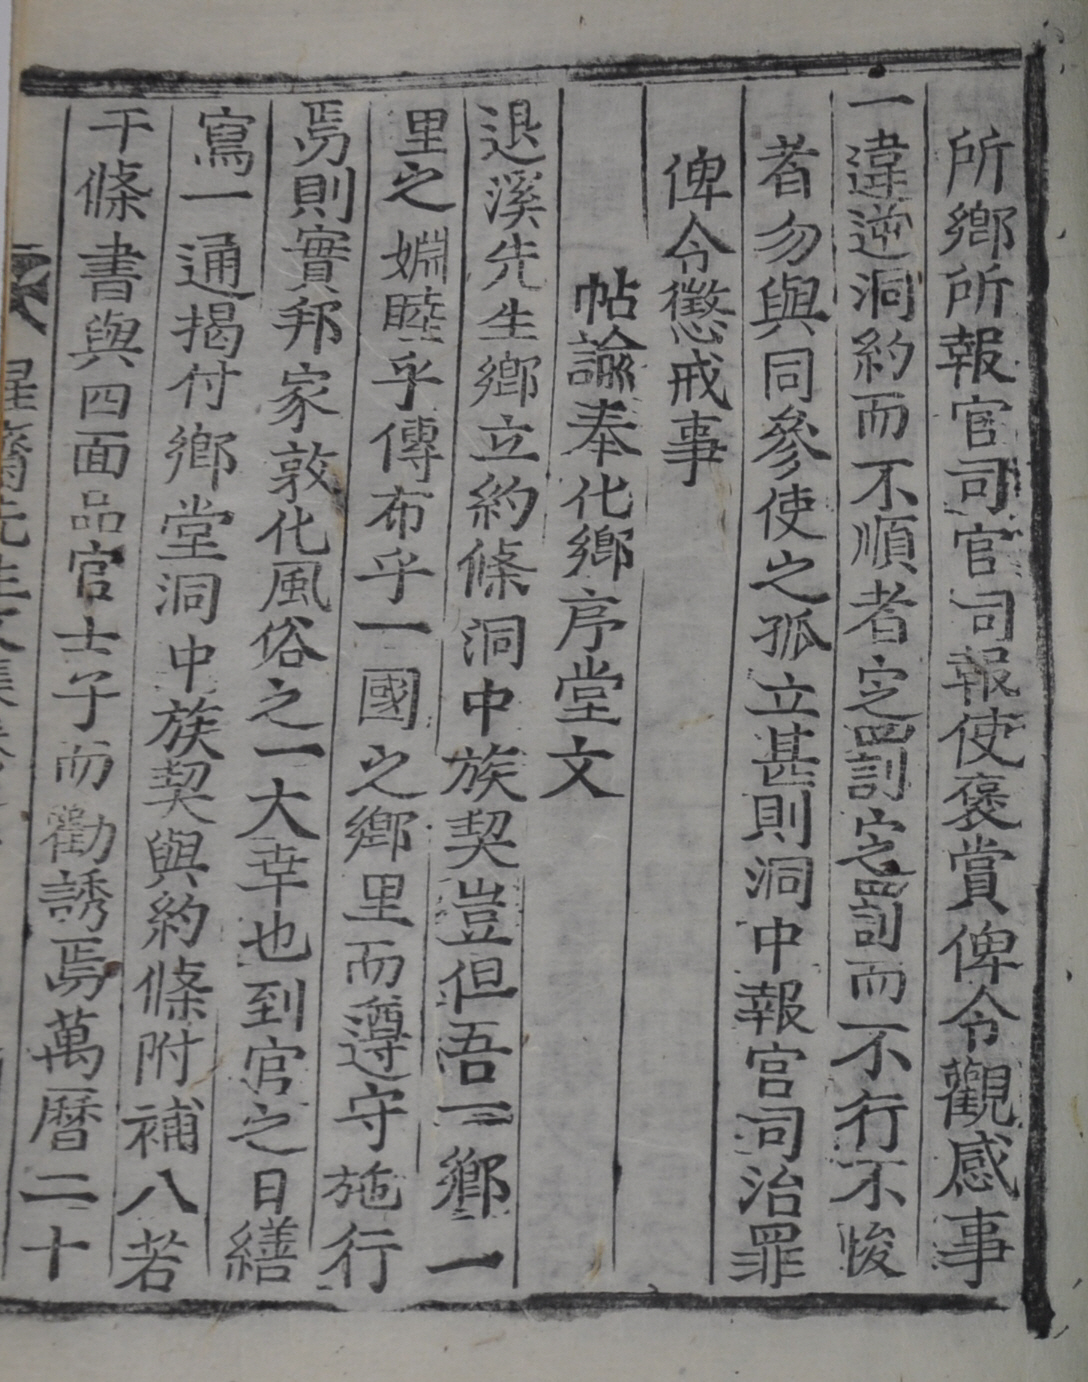 所鄕所報官司官司報使褒賞俾令觀感事
一違逆洞約而不順者定罰定罰而不行不悛
者勿與同參使之孤立甚則洞中報官司治罪
俾令懲戒事
帖諭奉化鄕序堂文
退溪先生鄕立約條洞中族契豈但吾一鄕一
里之婣睦乎傳布乎一國之鄕里而遵守施行
焉則實邦家敦化風俗之一大幸也到官之日繕
寫一通揭付鄕堂洞中族契與約條附補八若
干條書與四面品官士子而勸誘焉萬曆二十
先生文集卷